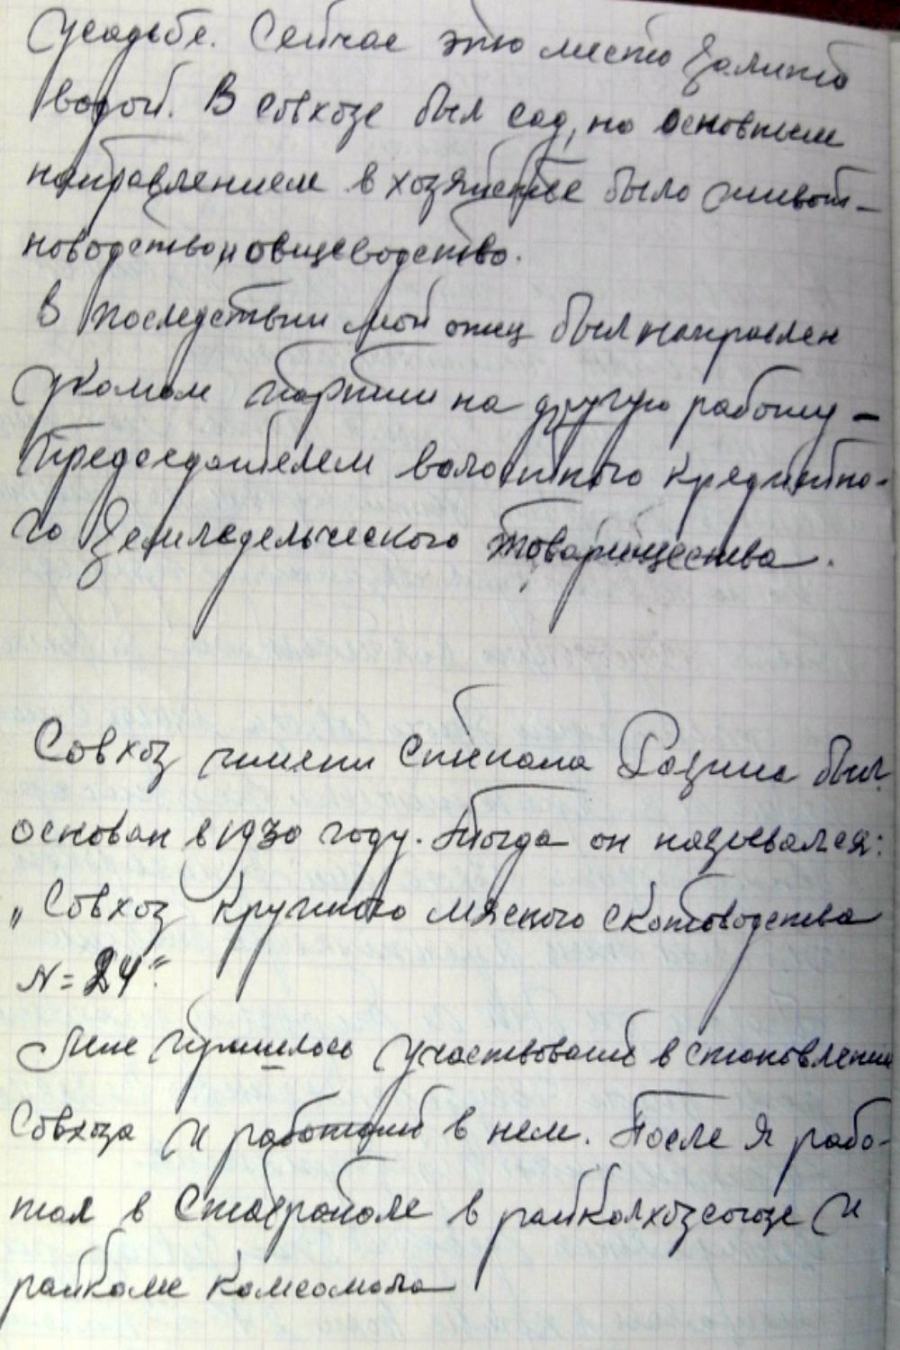 Усадьбе. Сейчас это место залито
водой. В совхозе был сад, но основным
направлением в хозяйстве было живот-
новодство и овцеводство.
В последствии мой отец был направлен
Укомом партии на другую работу –
Председателем волостного кредитно-
го Земледельческого товарищества.
Совхоз имени Степана Разина был
основан в 1930 году. Тогда он назывался:
„Совхоз крупного мясного скотоводства
N=24".
Мне пришлось участвовать в становлении
Совхоза и работать в нем. После я рабо-
тал в Ставрополе в райколхозсоюзе и
райкоме комсомола